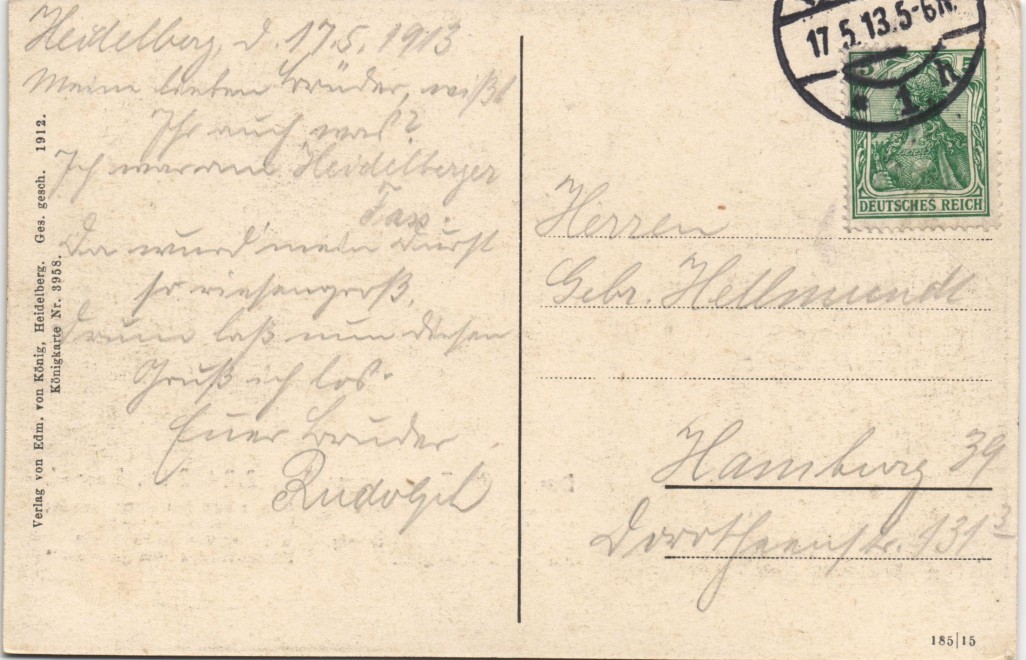 Heidelberg, d. 17.5.1913
Meine lieben Brüder, wißt
Ihr auch was?
Ich war am Heidelberger
Fass.
Da wurd mein Durst
so riesengroß,
Drum laß nun diesen
Gruß ich los.
Euer Bruder
Rudolph
Verlag von Edm. von König, Heidelberg. Ges. gesch. 1912.
Königkarte Nr. 3958.
17.5.13.5-6N.
* 1 h
5 5
DEUTSCHES REICH
Herren
Gebr. Hellmundt
Hamburg 39
Dorotheenstr. 131³
185|15